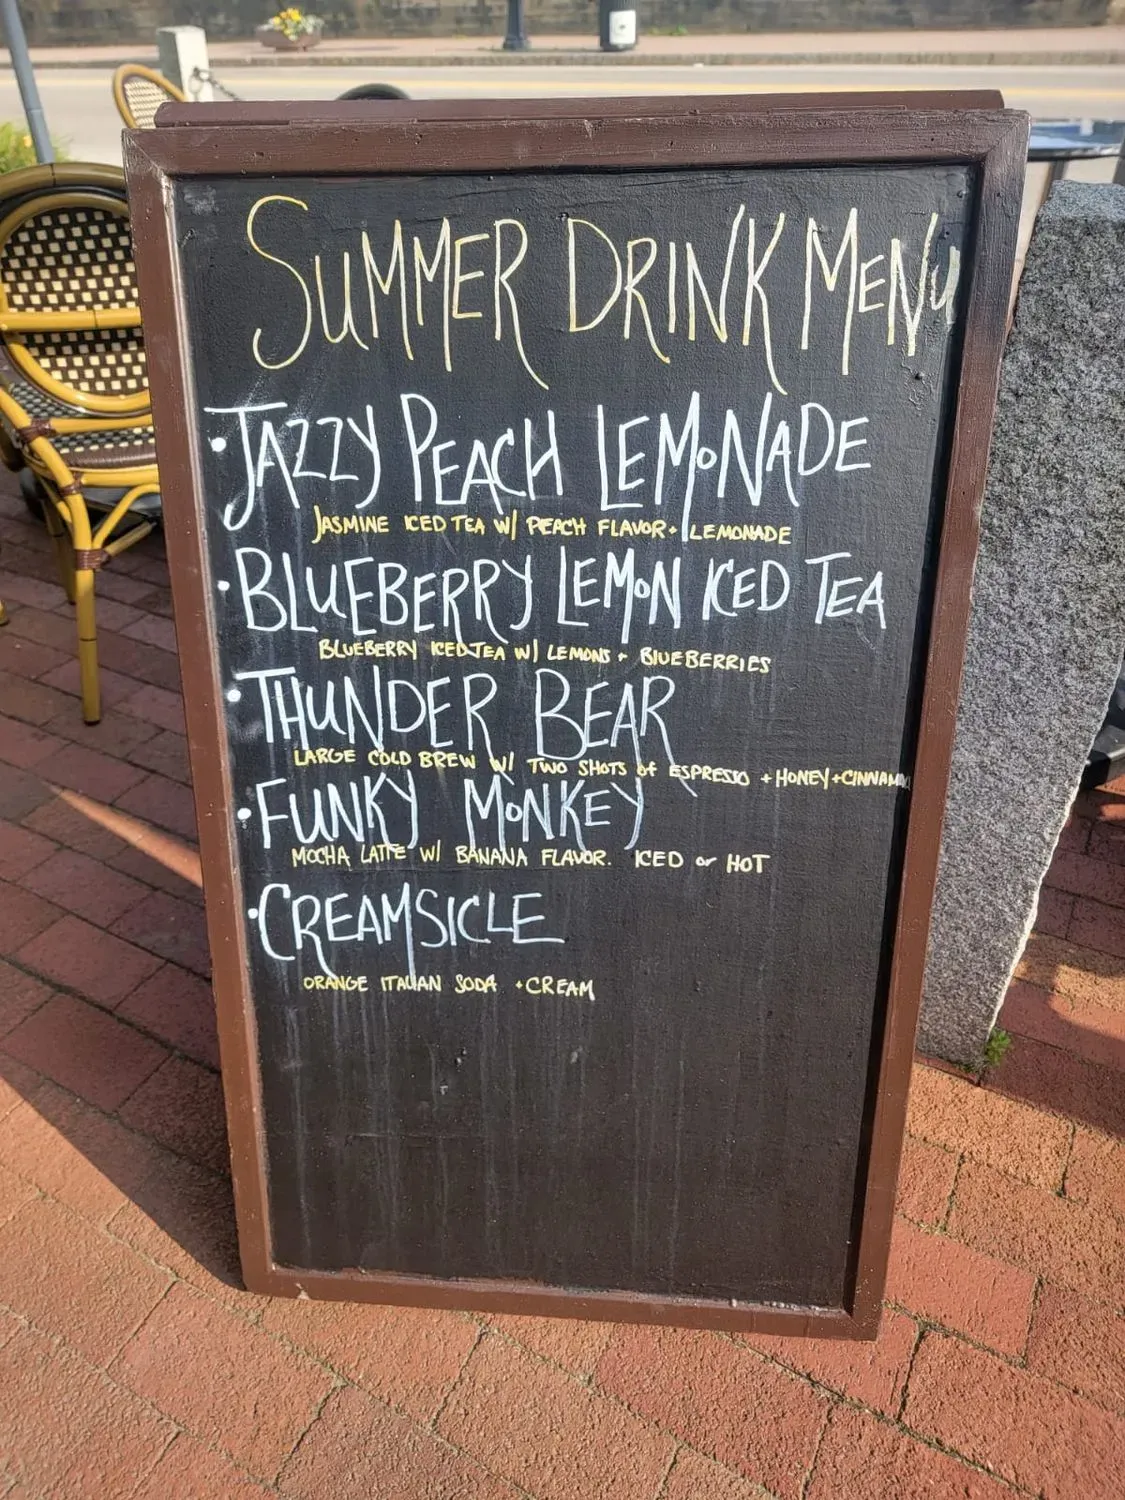 SUMMER DRINK MENU
• JAZZY PEACH LEMONADE
JASMINE ICED TEA W/ PEACH FLAVOR + LEMONADE
• BLUEBERRY LEMON ICED TEA
BLUEBERRY ICED TEA W/ LEMONS + BLUEBERRIES
• THUNDER BEAR
LARGE COLD BREW W/ TWO SHOTS of ESPRESSO + HONEY + CINNAMON
• FUNKY MONKEY
MOCHA LATTE W/ BANANA FLAVOR. ICED or HOT
• CREAMSICLE
ORANGE ITALIAN SODA + CREAM